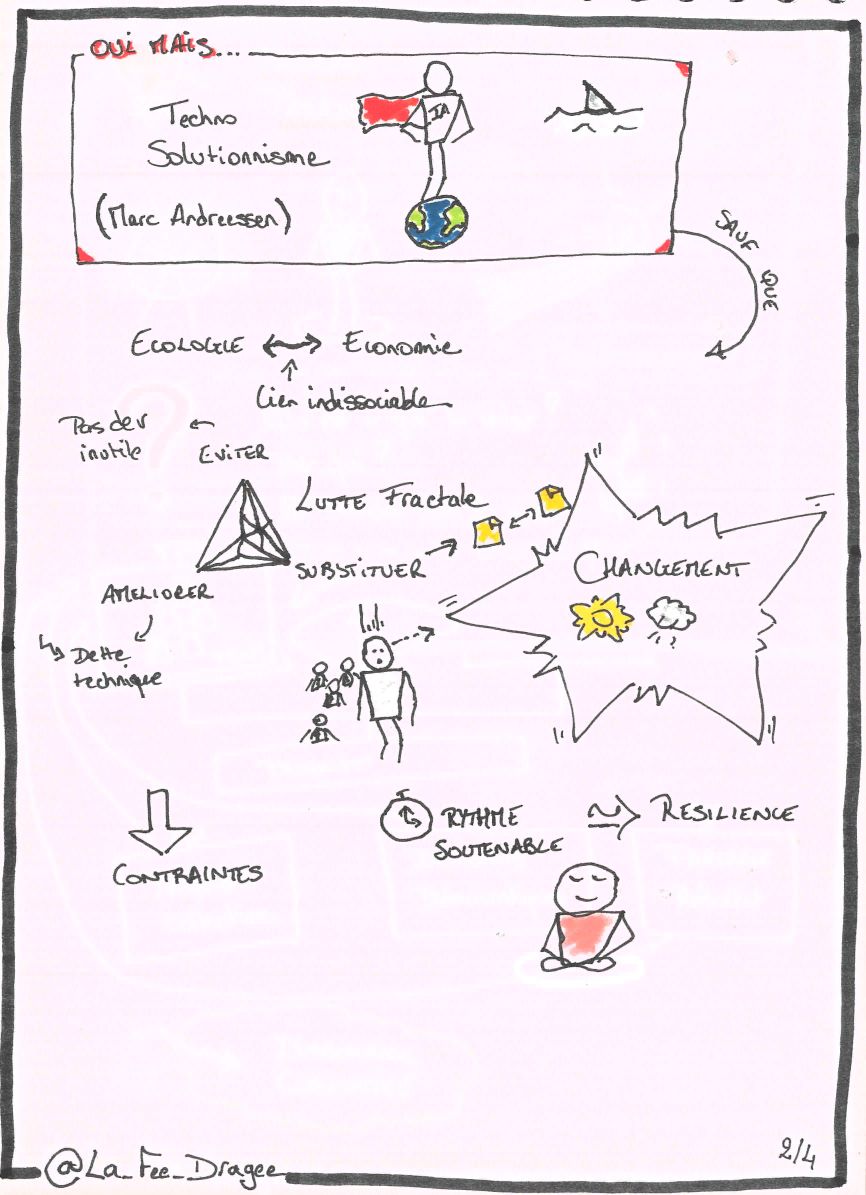 OUI MAIS...
Techno
Solutionnisme
(Marc Andreessen)
IA
SAUF QUE
ECOLOGIE ↔ ECONOMIE
↑
lien indissociable
Pas dev
inutile
← EVITER
LUTTE Fractale
SUBSTITUER →
AMELIORER
↳ Dette
technique
CHANGEMENT
CONTRAINTES
RYTHME
SOUTENABLE
RESILIENCE
@La_Fee_Dragee
2/4